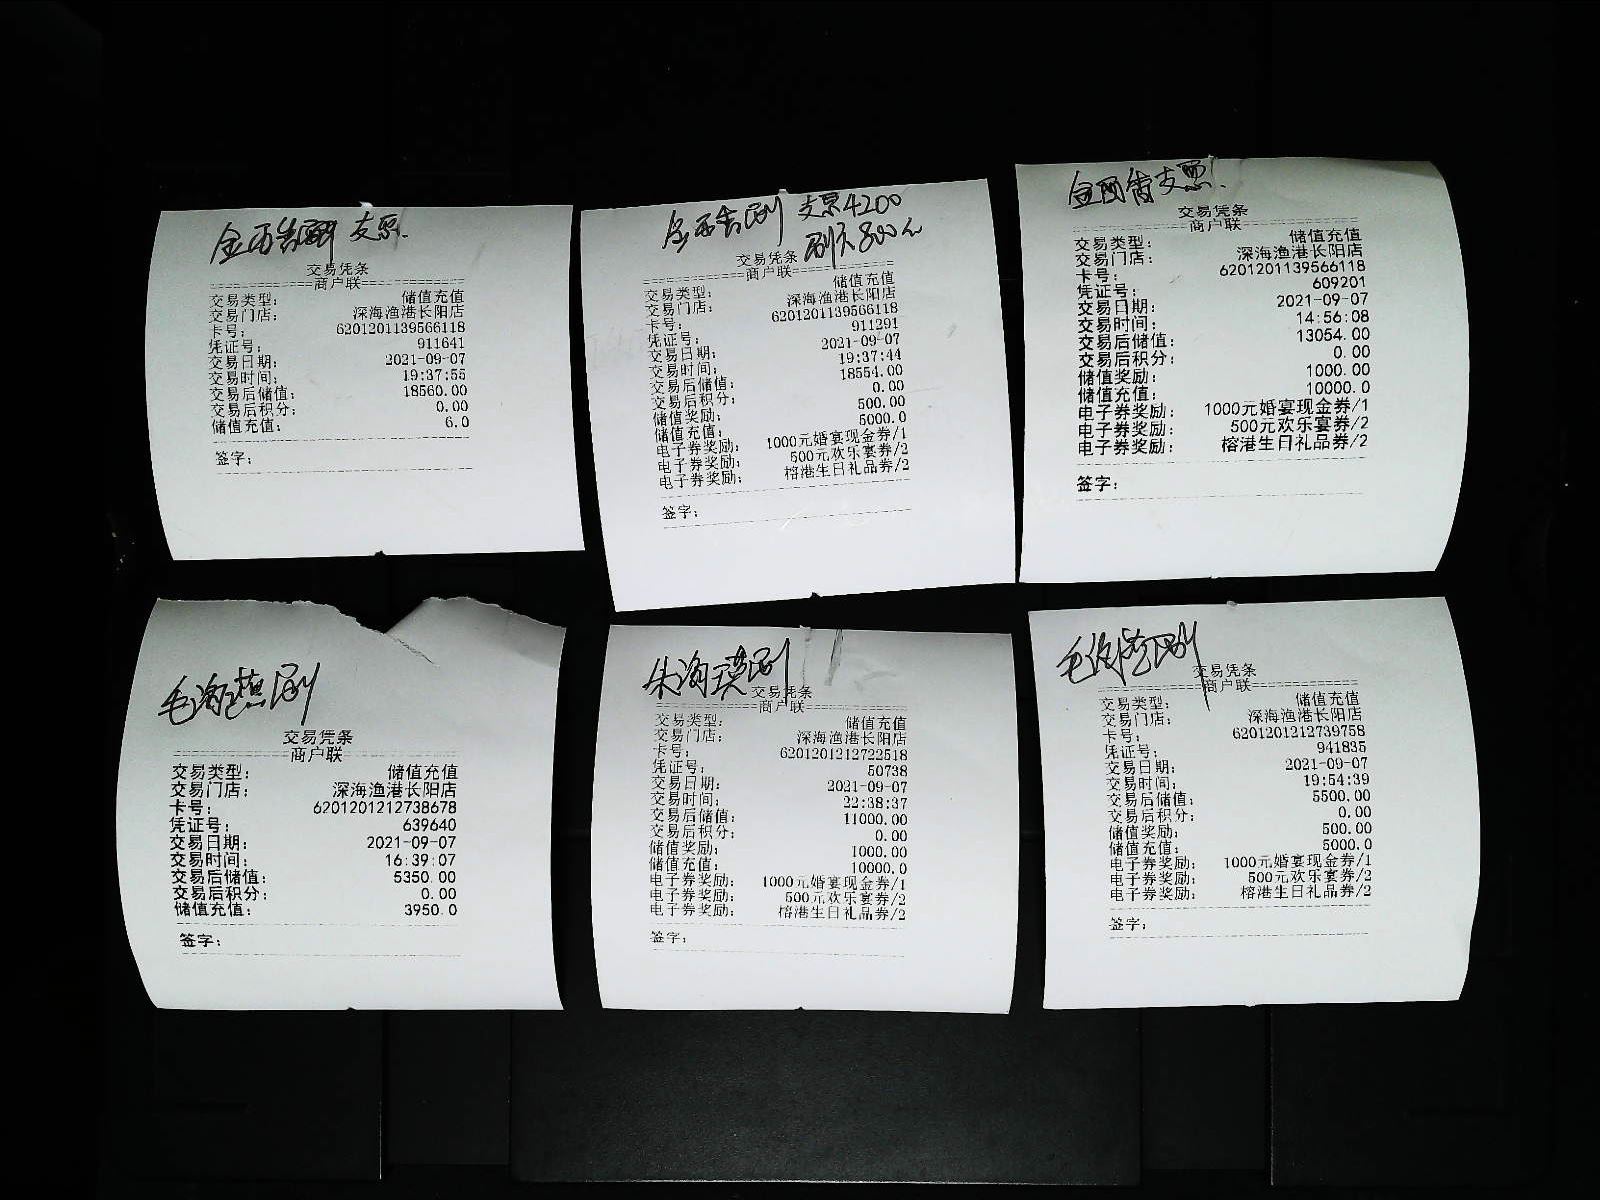 支票.
交易凭条
商户联
交易类型: 储值充值
交易门店: 深海渔港长阳店
卡号: 6201201139566118
凭证号: 911641
交易日期: 2021-09-07
交易时间: 19:37:55
交易后储值: 18560.00
交易后积分: 0.00
储值充值: 6.0
签字:
支票4200
刷卡800元
交易凭条
商户联
交易类型: 储值充值
交易门店: 深海渔港长阳店
卡号: 6201201139566118
凭证号: 911291
交易日期: 2021-09-07
交易时间: 19:37:44
交易后储值: 18554.00
交易后积分: 0.00
储值奖励: 500.00
储值充值: 5000.0
电子券奖励: 1000元婚宴现金券/1
电子券奖励: 500元欢乐宴券/2
电子券奖励: 榕港生日礼品券/2
签字:
支票.
交易凭条
商户联
交易类型: 储值充值
交易门店: 深海渔港长阳店
卡号: 6201201139566118
凭证号: 609201
交易日期: 2021-09-07
交易时间: 14:56:08
交易后储值: 13054.00
交易后积分: 0.00
储值奖励: 1000.00
储值充值: 10000.0
电子券奖励: 1000元婚宴现金券/1
电子券奖励: 500元欢乐宴券/2
电子券奖励: 榕港生日礼品券/2
签字:
交易凭条
商户联
交易类型: 储值充值
交易门店: 深海渔港长阳店
卡号: 6201201212738678
凭证号: 639640
交易日期: 2021-09-07
交易时间: 16:39:07
交易后储值: 5350.00
交易后积分: 0.00
储值充值: 3950.0
签字:
交易凭条
商户联
交易类型: 储值充值
交易门店: 深海渔港长阳店
卡号: 6201201212722518
凭证号: 50738
交易日期: 2021-09-07
交易时间: 22:38:37
交易后储值: 11000.00
交易后积分: 0.00
储值奖励: 1000.00
储值充值: 10000.0
电子券奖励: 1000元婚宴现金券/1
电子券奖励: 500元欢乐宴券/2
电子券奖励: 榕港生日礼品券/2
签字:
交易凭条
商户联
交易类型: 储值充值
交易门店: 深海渔港长阳店
卡号: 6201201212739758
凭证号: 941835
交易日期: 2021-09-07
交易时间: 19:54:39
交易后储值: 5500.00
交易后积分: 0.00
储值奖励: 500.00
储值充值: 5000.0
电子券奖励: 1000元婚宴现金券/1
电子券奖励: 500元欢乐宴券/2
电子券奖励: 榕港生日礼品券/2
签字: